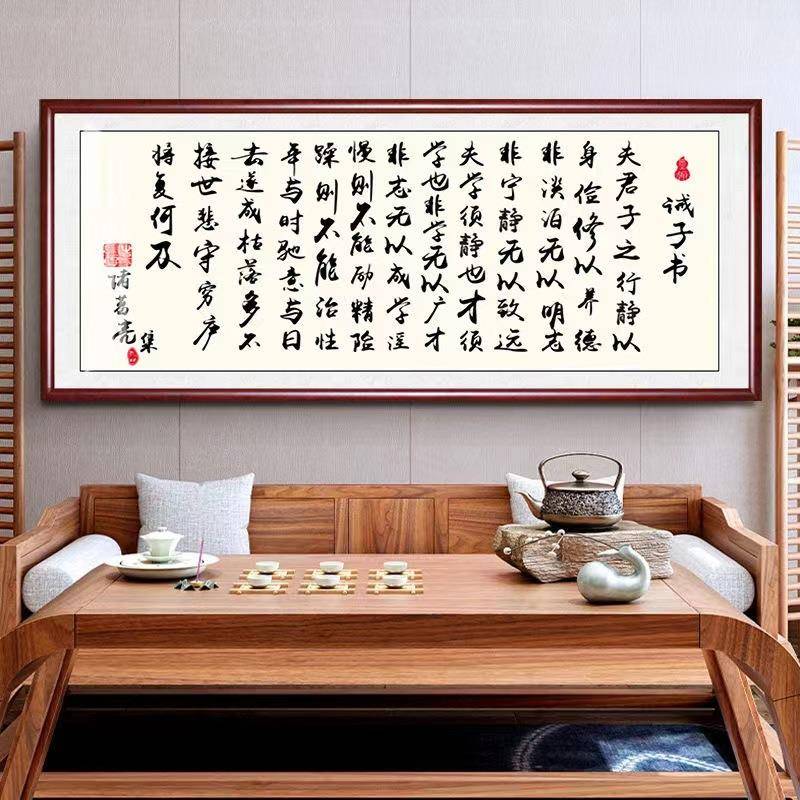 诫子书
夫君子之行静以
身俭修以养德
非淡泊无以明志
非宁静无以致远
夫学须静也才须
学也非学无以广才
非志无以成学淫
慢则不能励精险
躁则不能治性
年与时驰意与日
去遂成枯落多不
接世悲守穷庐
将复何及
诸葛亮
集